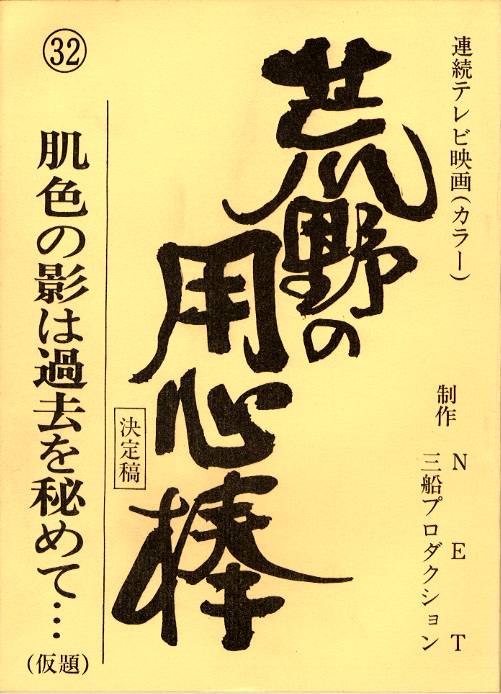 連続テレビ映画(カラー)
制作 NET
三船プロダクション
荒野の
用心棒
決定稿
㉜
肌色の影は過去を秘めて…
(仮題)